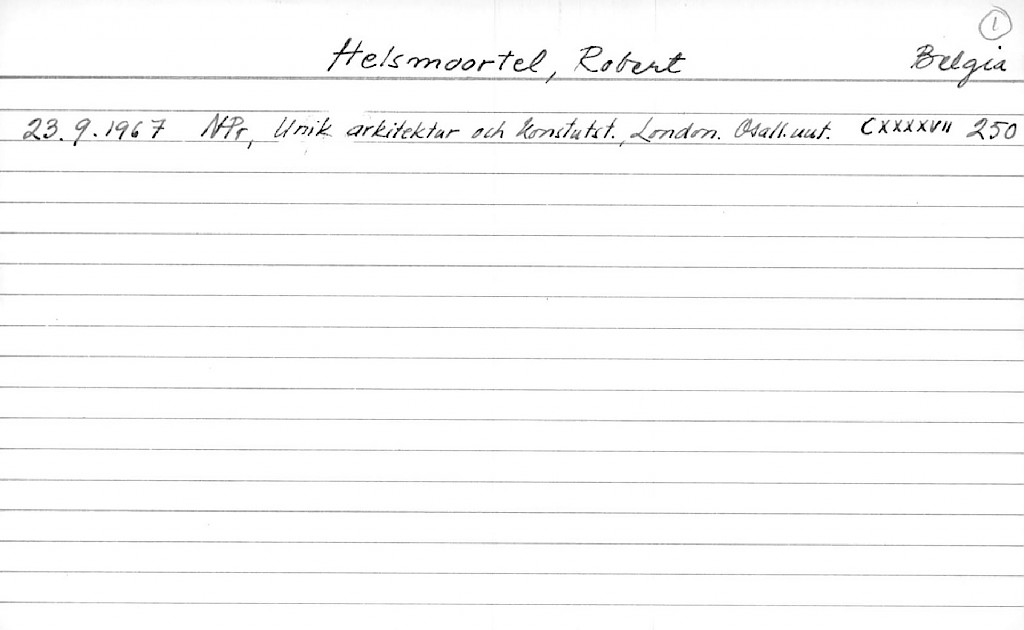 1
Helsmoortel, Robert Belgia
23.9.1967 NPr, Unik arkitektur och konstutst., London. Osall.uut. CXXXXVII 250